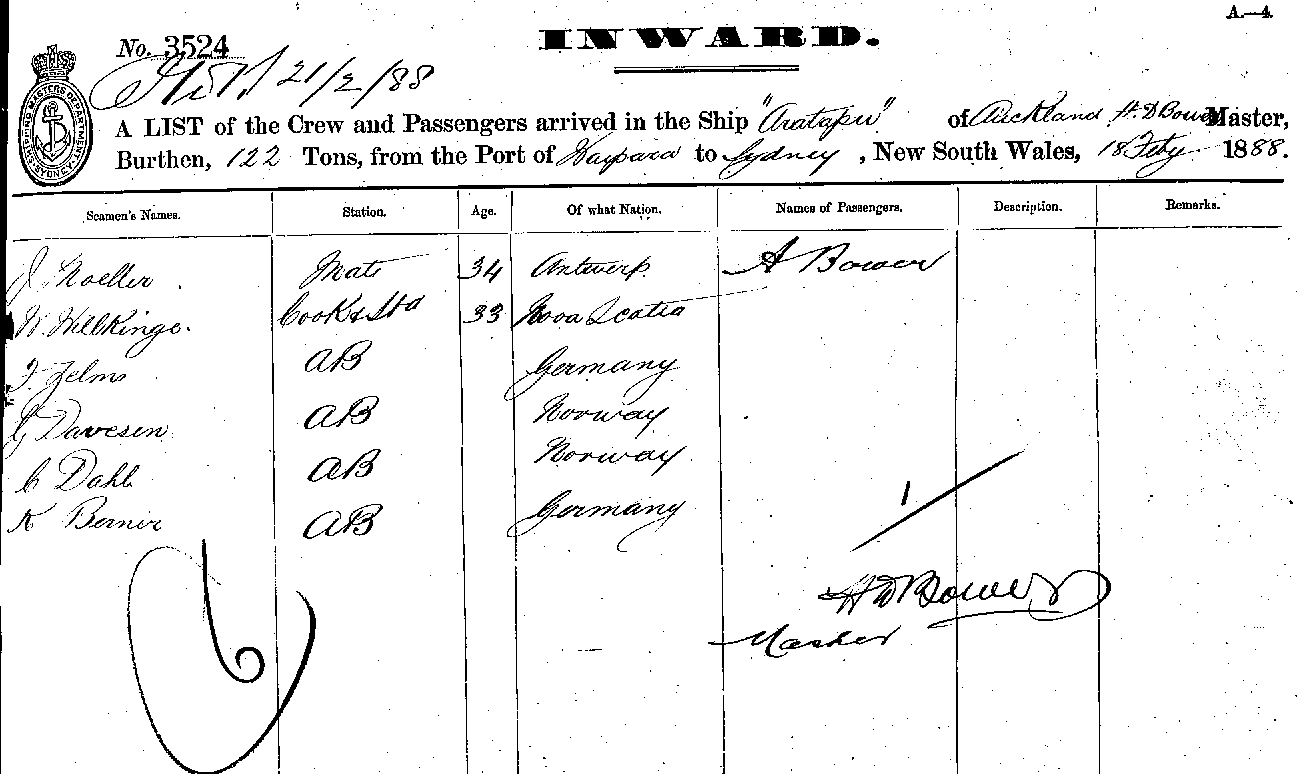 A.—4.
INWARD.
No. 3524
21/2/88
SHIPPING MASTERS DEPARTMENT SYDNEY
A LIST of the Crew and Passengers arrived in the Ship "Aratapu" of Auckland, H. D Bower Master,
Burthen, 122 Tons, from the Port of to Sydney, New South Wales, 18 Feby 1888.
Seamen's Names. Station. Age. Of what Nation. Names of Passengers. Description. Remarks.
J. Moeller Mate 34 Antwerp A Bower
W. Cook & Std 33 Nova Scotia
AB Germany
Davesen AB Norway
C Dahl AB Norway
K Berner AB Germany
1
H D Bower
Master